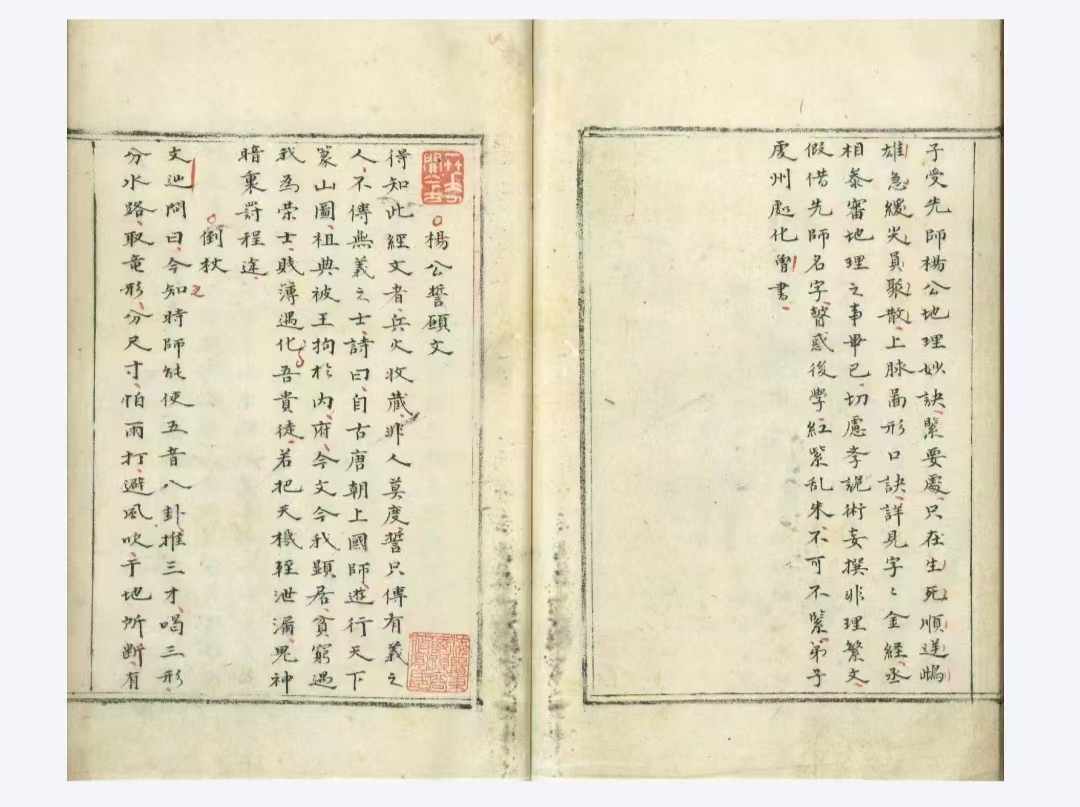 子受先師楊公地理妙訣緊要處只在生死順逆
雄急緩尖員聚散上脉啚形口訣詳見字〻金經丞
相泰審地理之事畢已切慮李說術妄撰非理繁文
假借先師名字瞽惑後學紅紫乱朱不可不鑒弟子
虔州處化曾書
楊公誓願文
得知此經文者兵火收藏非人莫度誓只傳有義之
人不傳無義之士詩曰自古唐朝上國師遊行天下
篆山圖祖典被王拘於内府今文今我顕居貧窮遇
我為荣士賎薄遇化吾貴徒若把天機輕泄漏鬼神
暗裏罸程途
倒杖
文辿問曰今知時師能使五音八卦推三才喝三形
分水路取竜形分尺寸怕雨打避風吹干地斫断有